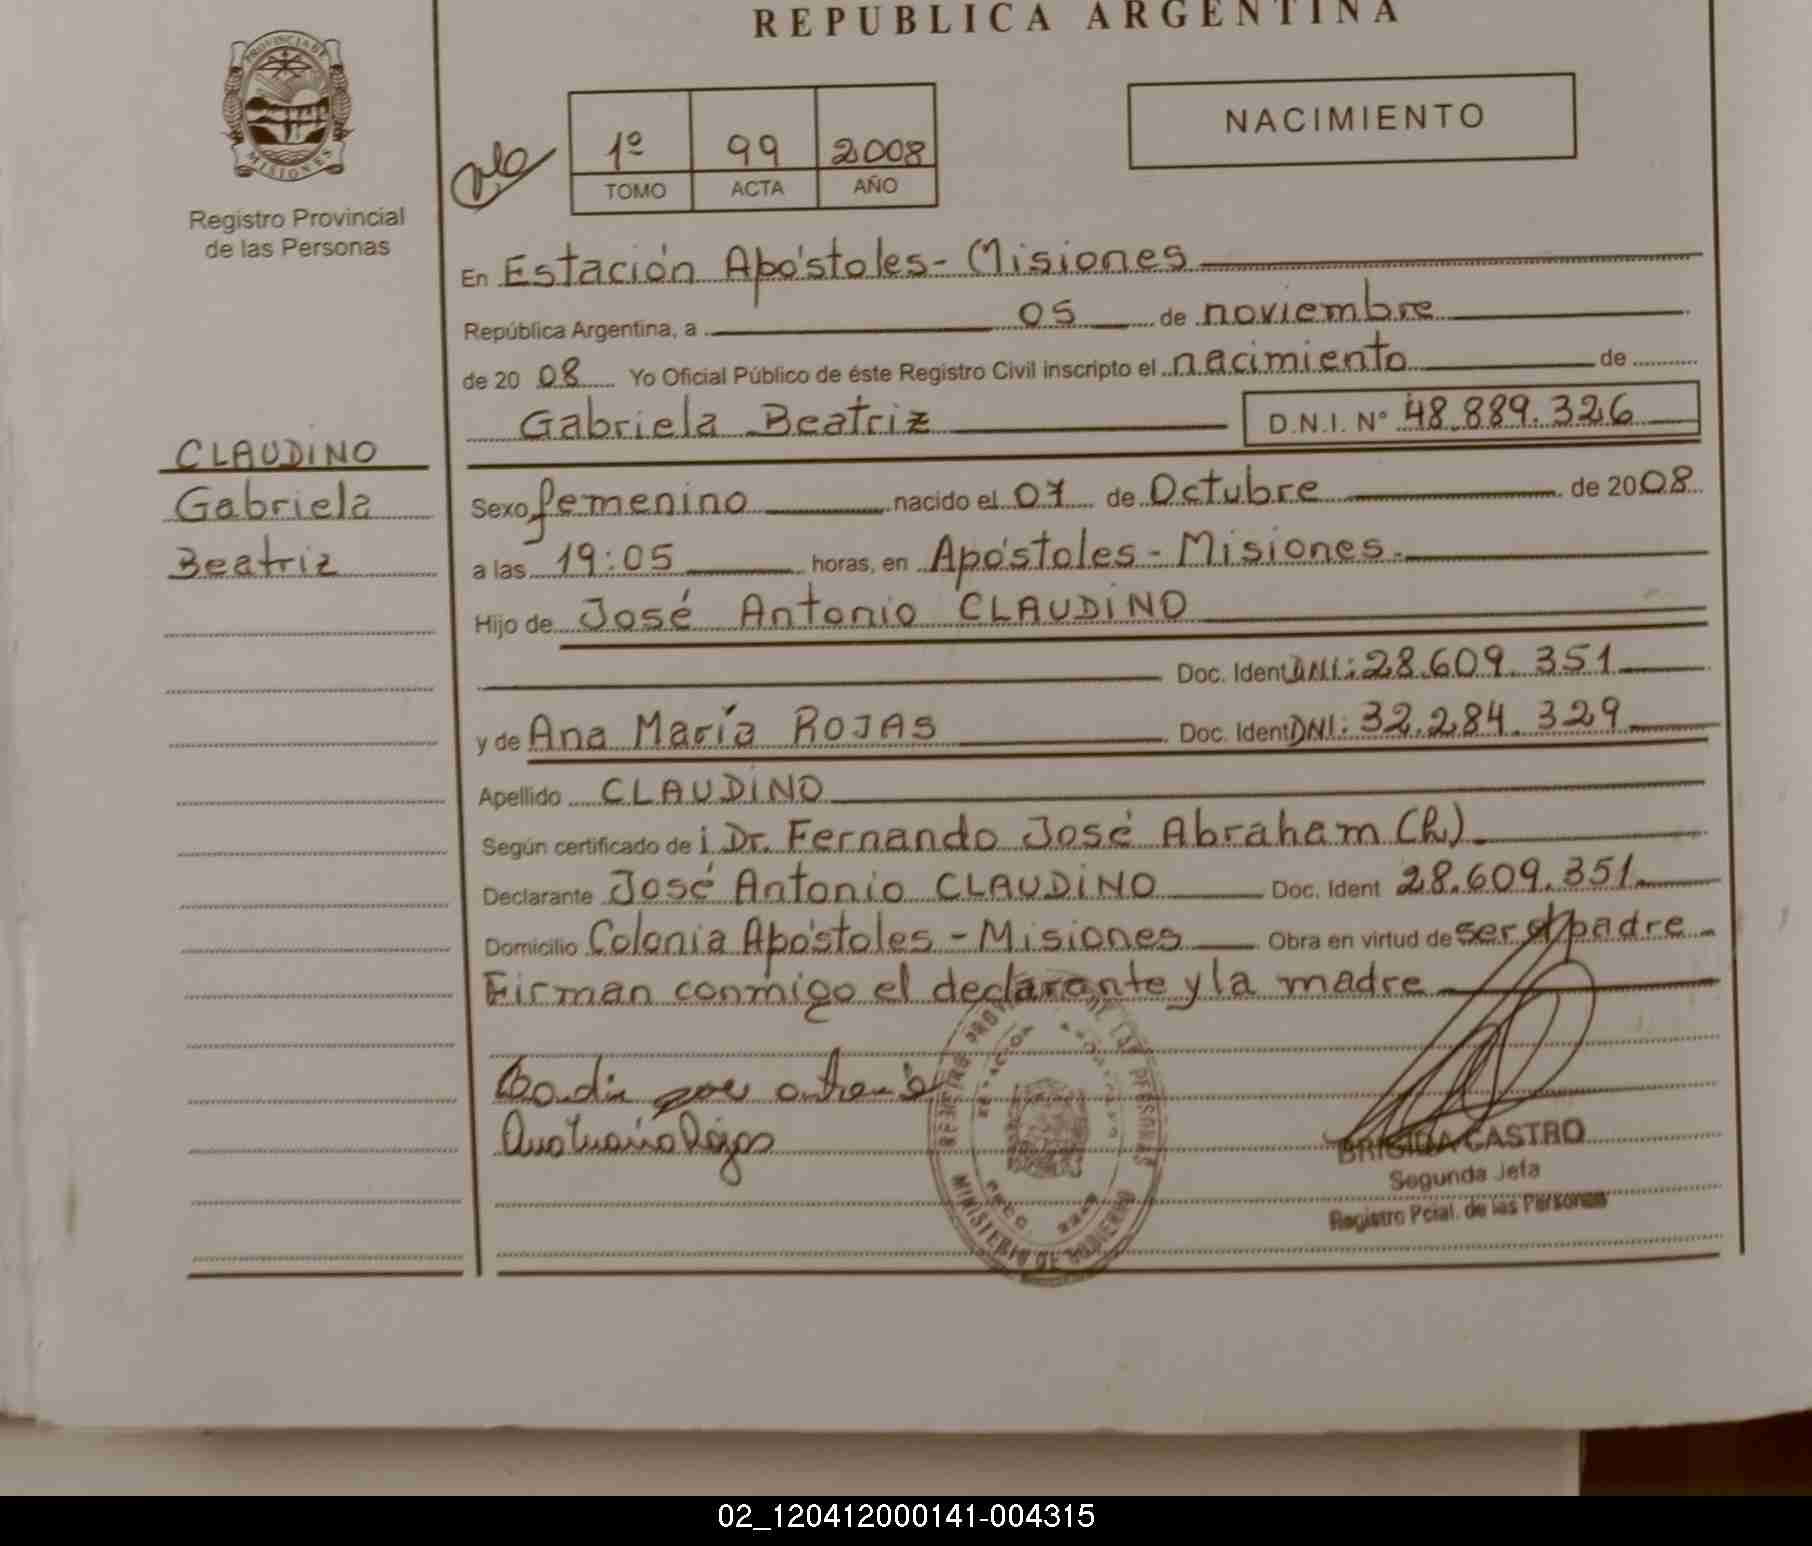 REPUBLICA ARGENTINA
PROVINCIA DE
MISIONES
Registro Provincial
de las Personas
1º 99 2008
TOMO ACTA AÑO
NACIMIENTO
En Estación Apóstoles - Misiones
República Argentina, a 05 de noviembre
de 20 08 Yo Oficial Público de éste Registro Civil inscripto el nacimiento de
Gabriela Beatriz D.N.I. Nº 48.889.326
CLAUDINO
Gabriela
Beatriz
Sexo femenino nacido el 07 de Octubre de 2008
a las 19:05 horas, en Apóstoles - Misiones.
Hijo de José Antonio CLAUDINO
Doc. Ident DNI: 28.609.351
y de Ana María ROJAS Doc. Ident DNI: 32.284.329
Apellido CLAUDINO
Según certificado de i Dr. Fernando José Abraham (h)
Declarante José Antonio CLAUDINO Doc. Ident 28.609.351
Domicilio Colonia Apóstoles - Misiones Obra en virtud de ser el padre
Firman conmigo el declarante y la madre
REGISTRO PROVINCIAL DE LAS PERSONAS
MINISTERIO DE GOBIERNO
BRIGIDA CASTRO
Segunda Jefa
Registro Pcial. de las Personas
02_120412000141-004315